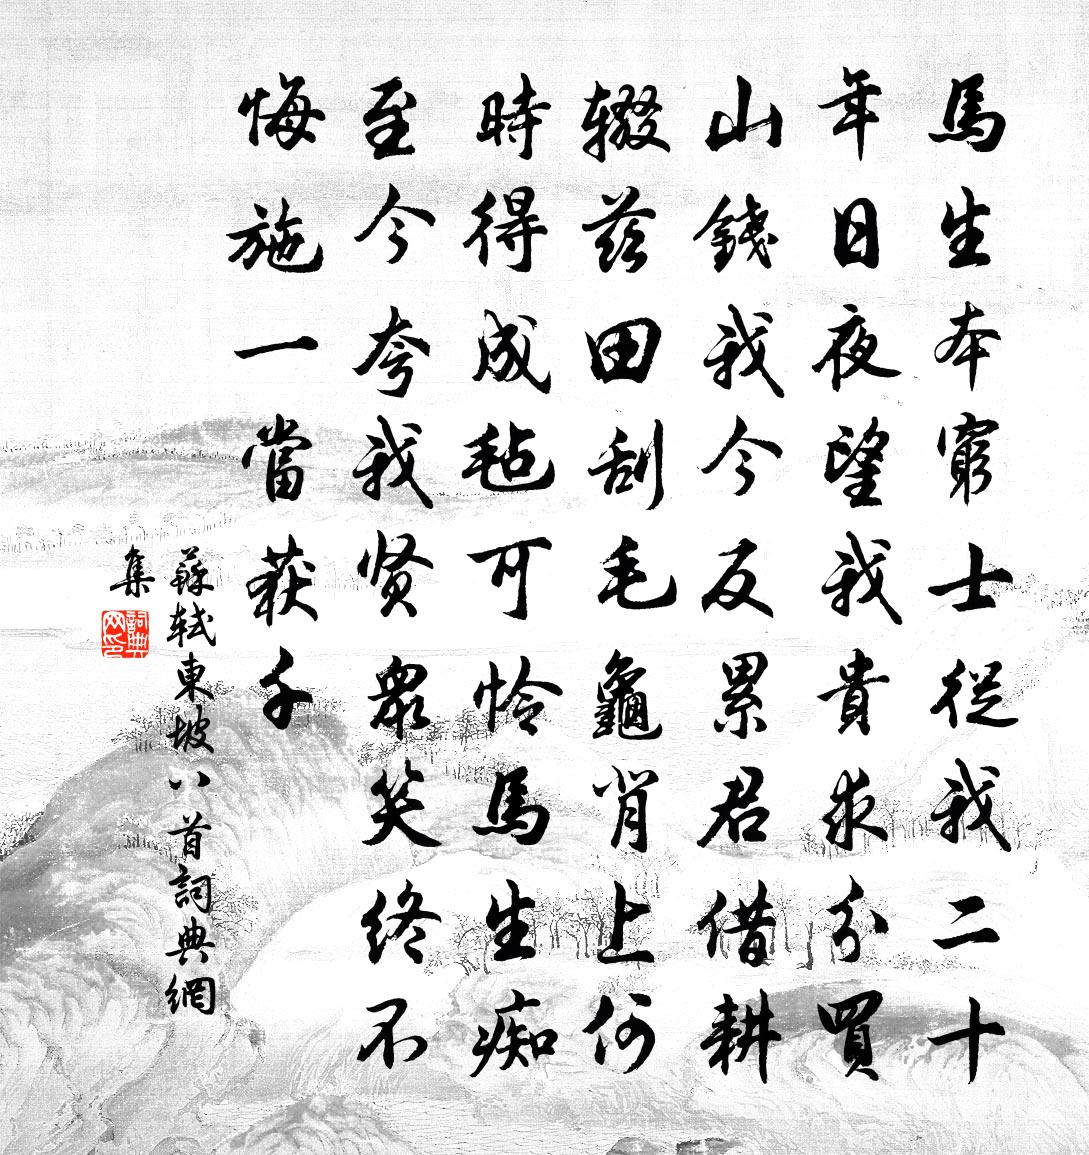 馬生本窮士從我二十
年日夜望我貴求分買
山錢我今反累君借耕
辍兹田刮毛龜背上何
時得成毡可怜馬生痴
至今夸我贤眾笑终不
悔施一當获千
蘇轼東坡八首詞典網
集
詞典网印